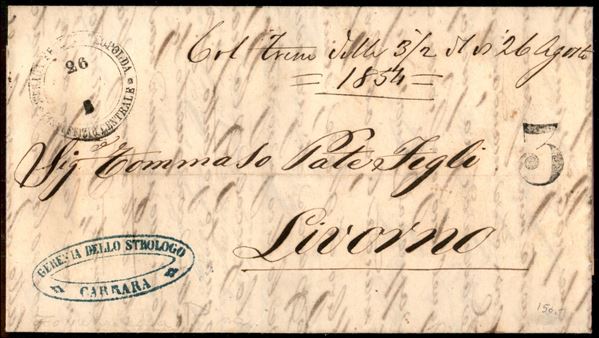 26
UFFIZIO CENTRALE
Col Treno delle 3/2 d'oi 26 Agosto
= 1854 =
5
Sig Tommaso Pate Figli
Livorno
GEREMIA DELLO STROLOGO
CARRARA
150